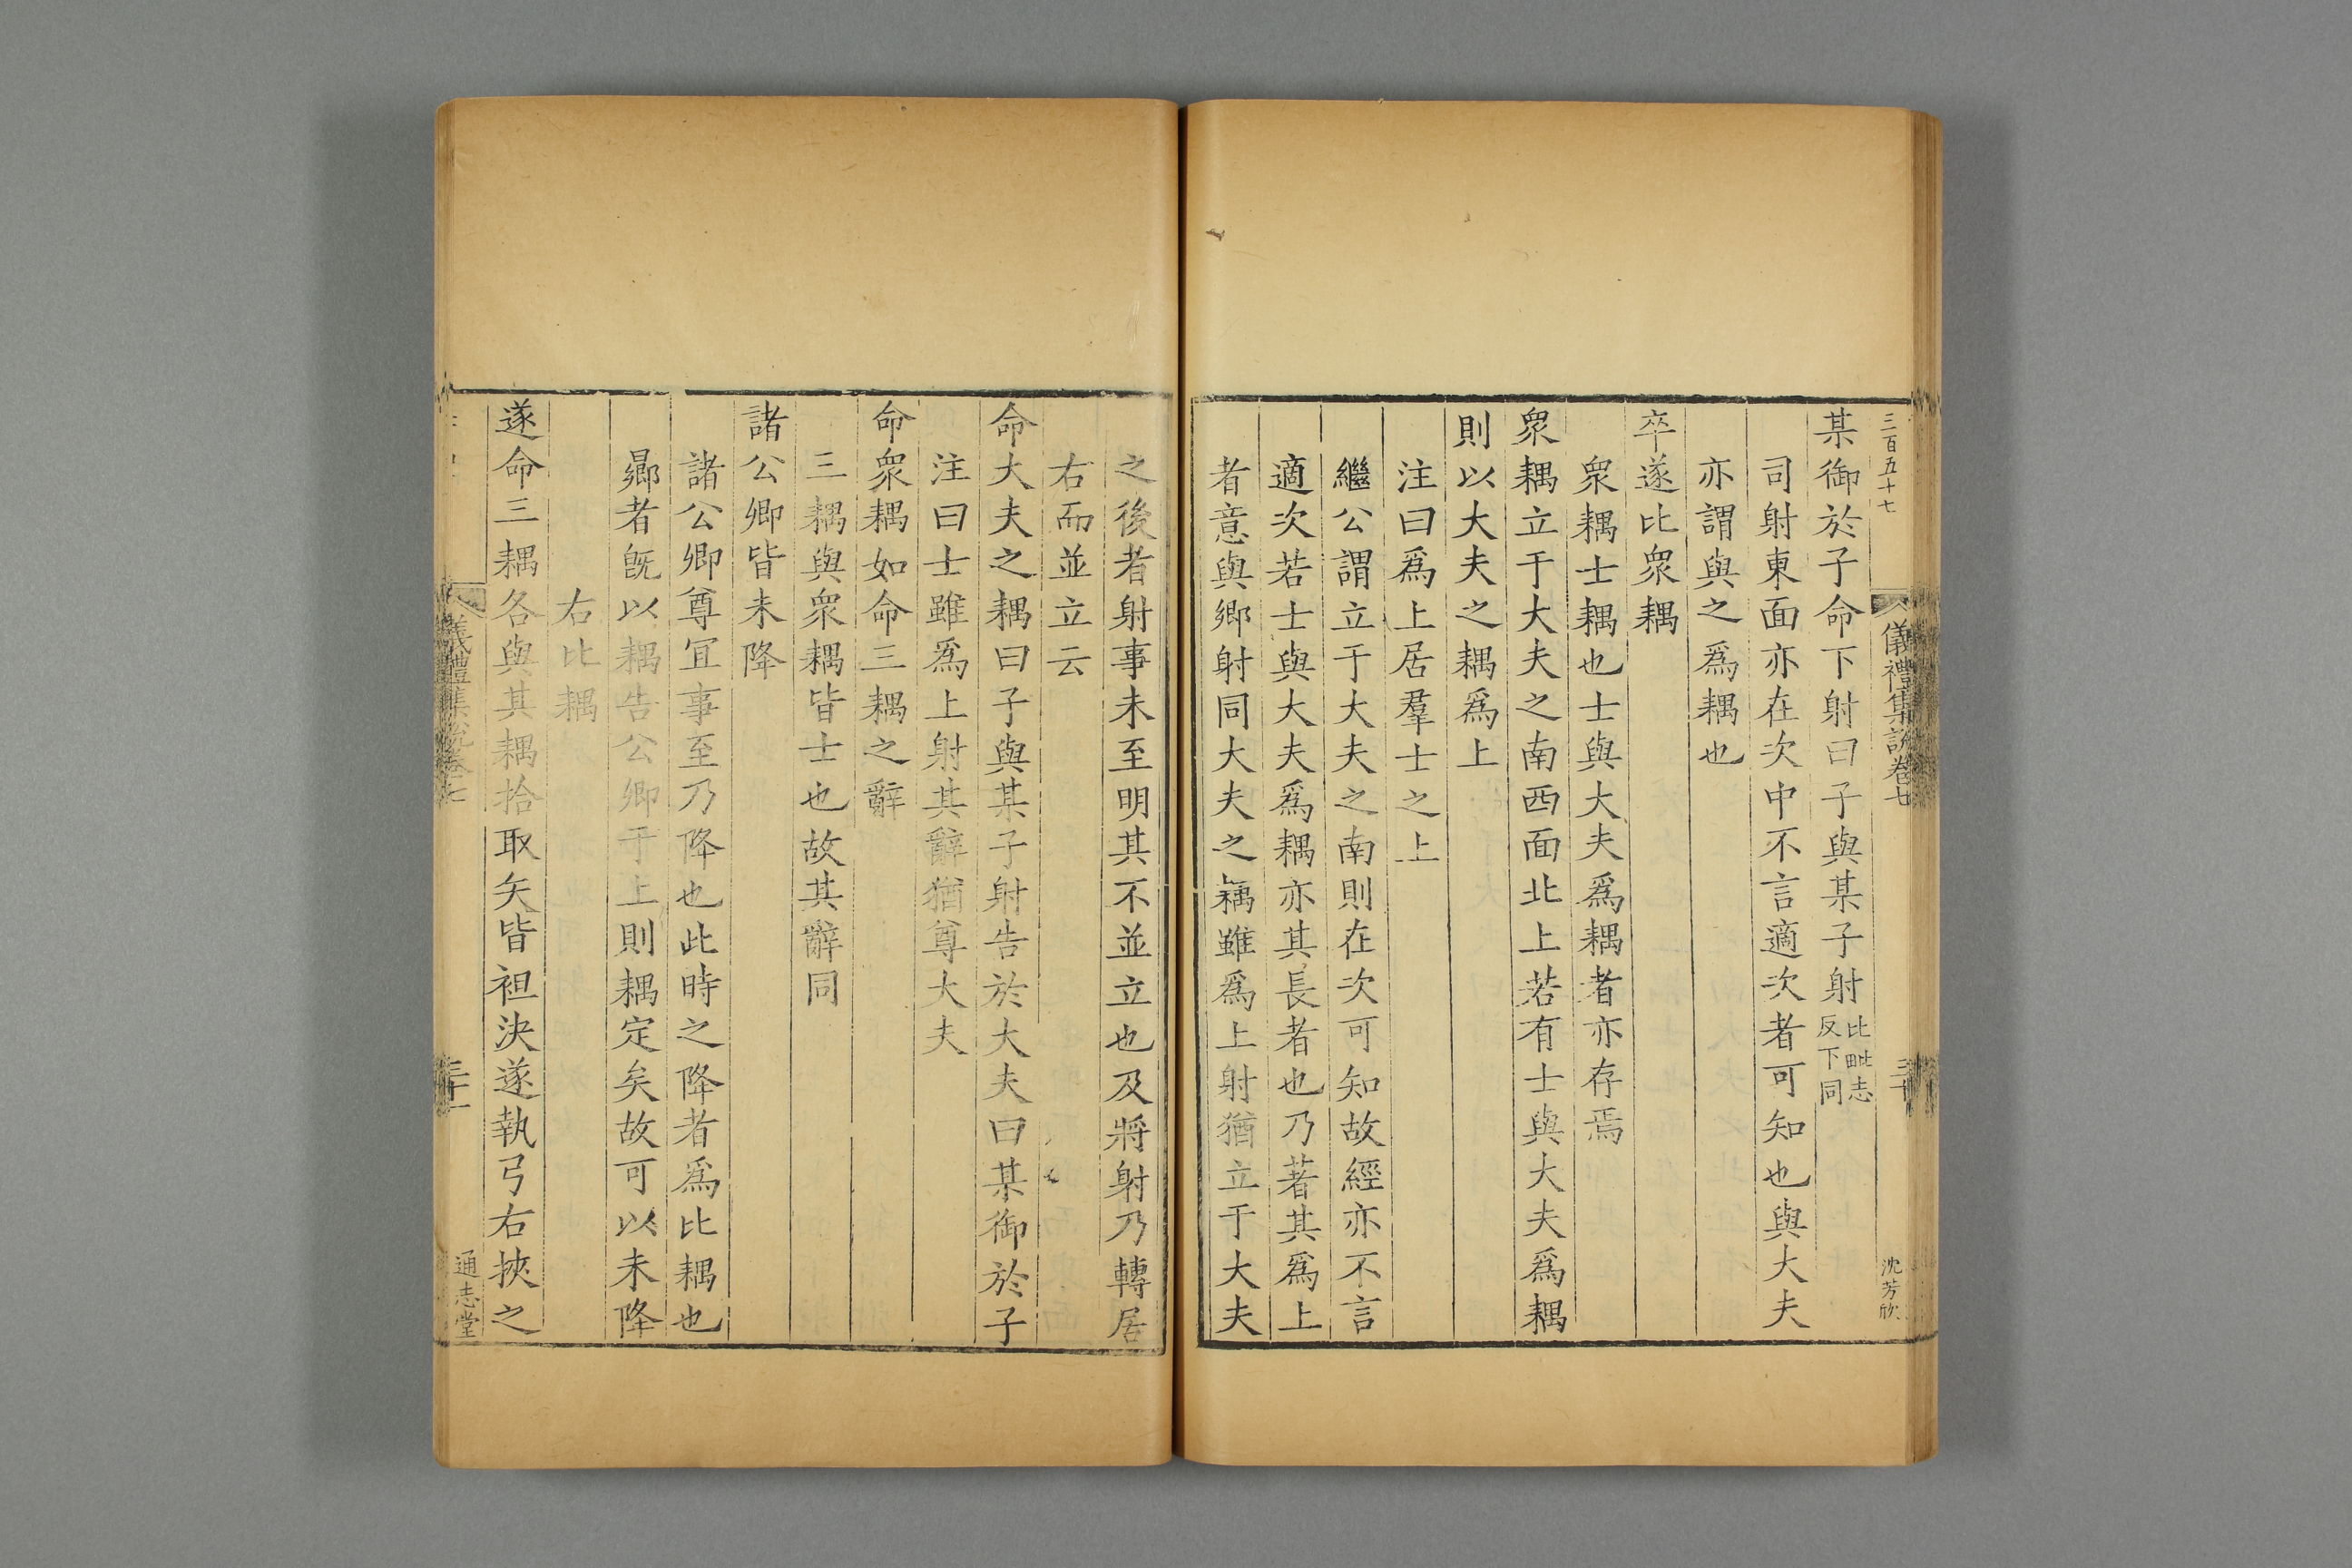 三百五十七
儀禮集說卷七
三十
沈芳欣
某御於子命下射曰子與某子射比毗志反下同
司射東面亦在次中不言適次者可知也與大夫
亦謂與之爲耦也
卒遂比衆耦
衆耦士耦也士與大夫爲耦者亦存焉
衆耦立于大夫之南西面北上若有士與大夫爲耦
則以大夫之耦爲上
注曰爲上居羣士之上
繼公謂立于大夫之南則在次可知故經亦不言
適次若士與大夫爲耦亦其長者也乃著其爲上
者意與鄉射同大夫之耦雖爲上射猶立于大夫
之後者射事未至明其不並立也及將射乃轉居
右而並立云
命大夫之耦曰子與某子射告於大夫曰某御於子
注曰士雖爲上射其辭猶尊大夫
命衆耦如命三耦之辭
三耦與衆耦皆士也故其辭同
諸公卿皆未降
諸公卿尊宜事至乃降也此時之降者爲比耦也
曏者旣以耦告公卿于上則耦定矣故可以未降
右比耦
遂命三耦各與其耦拾取矢皆袒決遂執弓右挾之
儀禮集說卷七
三十一
通志堂